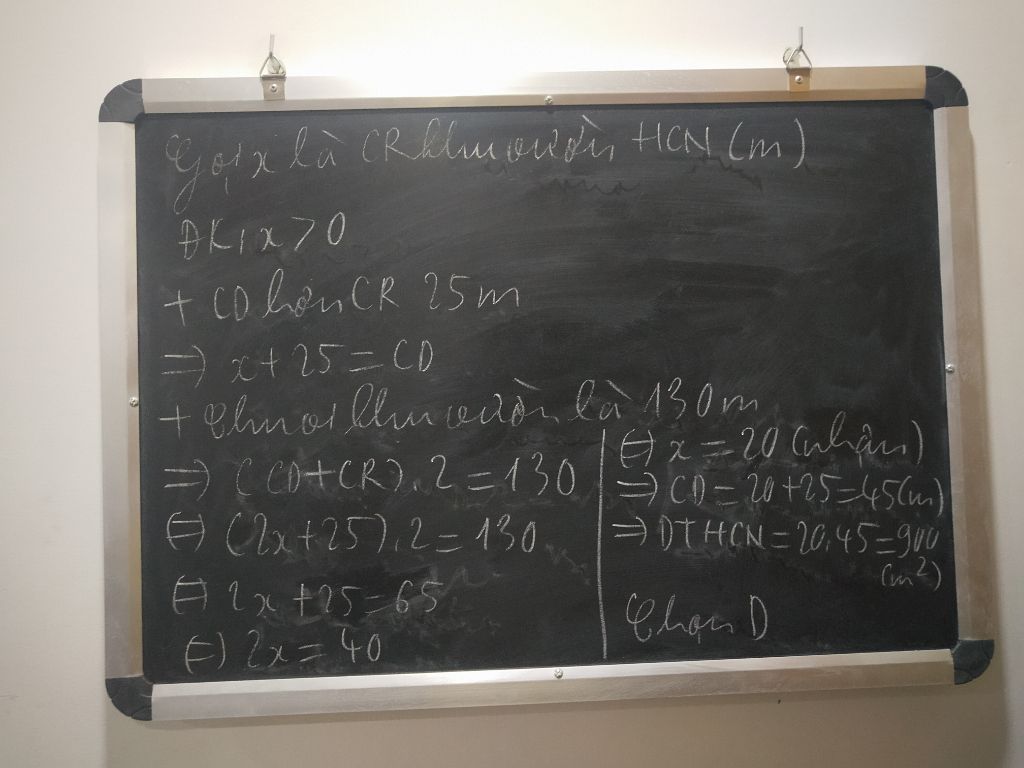 Gọi x là CR khu vườn HCN (m)
ĐK: x > 0
+ CD hơn CR 25 m
=> x + 25 = CD
+ Chu vi khu vườn là 130 m
=> (CD + CR).2 = 130
<=> (2x + 25).2 = 130
<=> 2x + 25 = 65
<=> 2x = 40
<=> x = 20 (nhận)
=> CD = 20 + 25 = 45 (m)
=> DT HCN = 20.45 = 900
(m²)
Chọn D